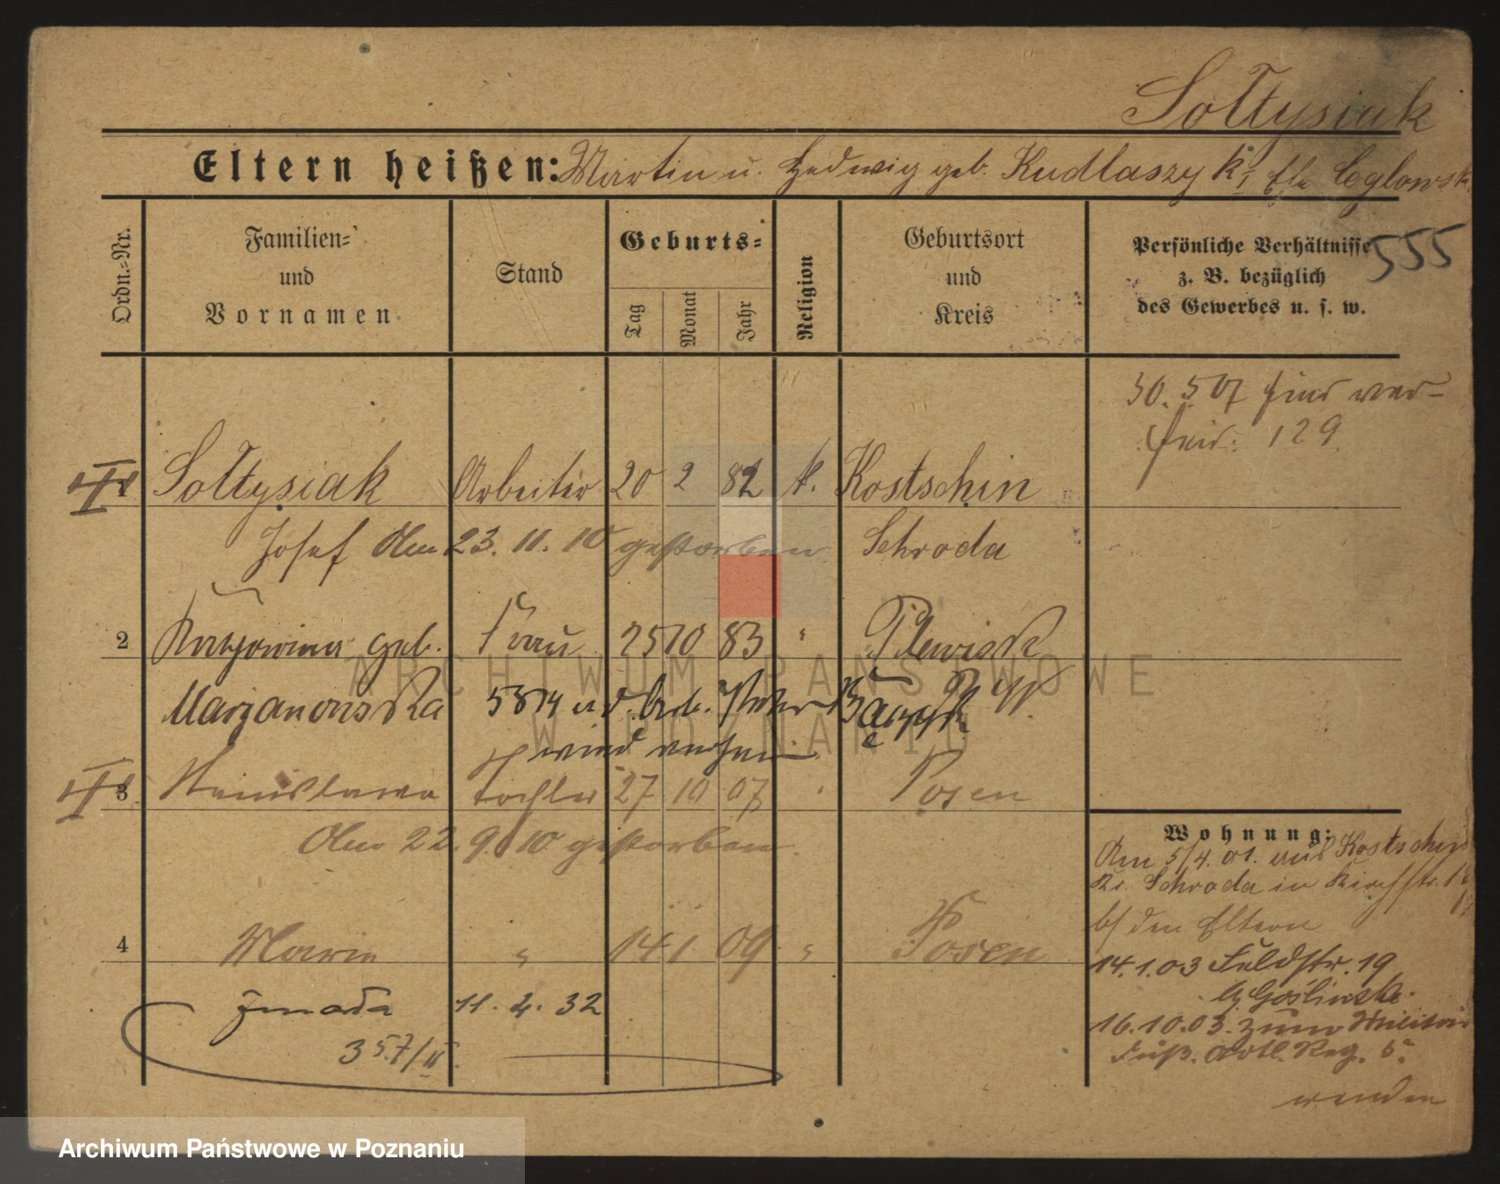 Sołtysiak
Eltern heißen: Martin u. Hedwig geb. Kudlaszyk,
555
Ordn.-Nr.
Familien-
und
Vornamen
Stand
Geburts-
Tag
Monat
Jahr
Religion
Geburtsort
und
Kreis
Persönliche Verhältnisse
z. B. bezüglich
des Gewerbes u. s. w.
30. 5 07
129
Sołtysiak Arbeiter 20 2 82 k. Kostschin
Josef Am 23. 11. 10 gestorben Schroda
2 Katharina geb. Frau 25 10 83 " Plewisk
Marjanowska
wird
3 Stanislawa Tochter 27 10 07 " Posen
Am 22. 9. 10 gestorben
4 Maria " 14 1 09 " Posen
11. 2. 32
357/II
Wohnung:
Am 5/4. 01. aus Kostschin
Kr. Schroda in
b/ den Eltern
14. 1. 03 Feldstr. 19
b/ Goślinski.
16. 10. 03. zum Militär
Fuß. Artl. Reg. 5.
wenden
ARCHIWUM PAŃSTWOWE
W POZNANIU
Archiwum Państwowe w Poznaniu